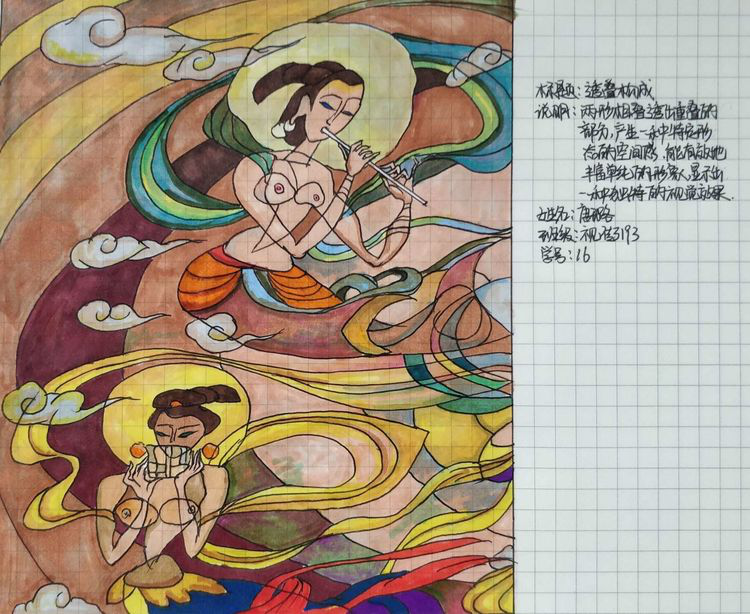 标题:透叠构成
说明:两形相叠透出重叠的
部分,产生一种特定形
态的空间感,能有效地
丰富单纯的形象,显示出
一种独特的视觉效果.
姓名:唐
班级:视传193
学号:16